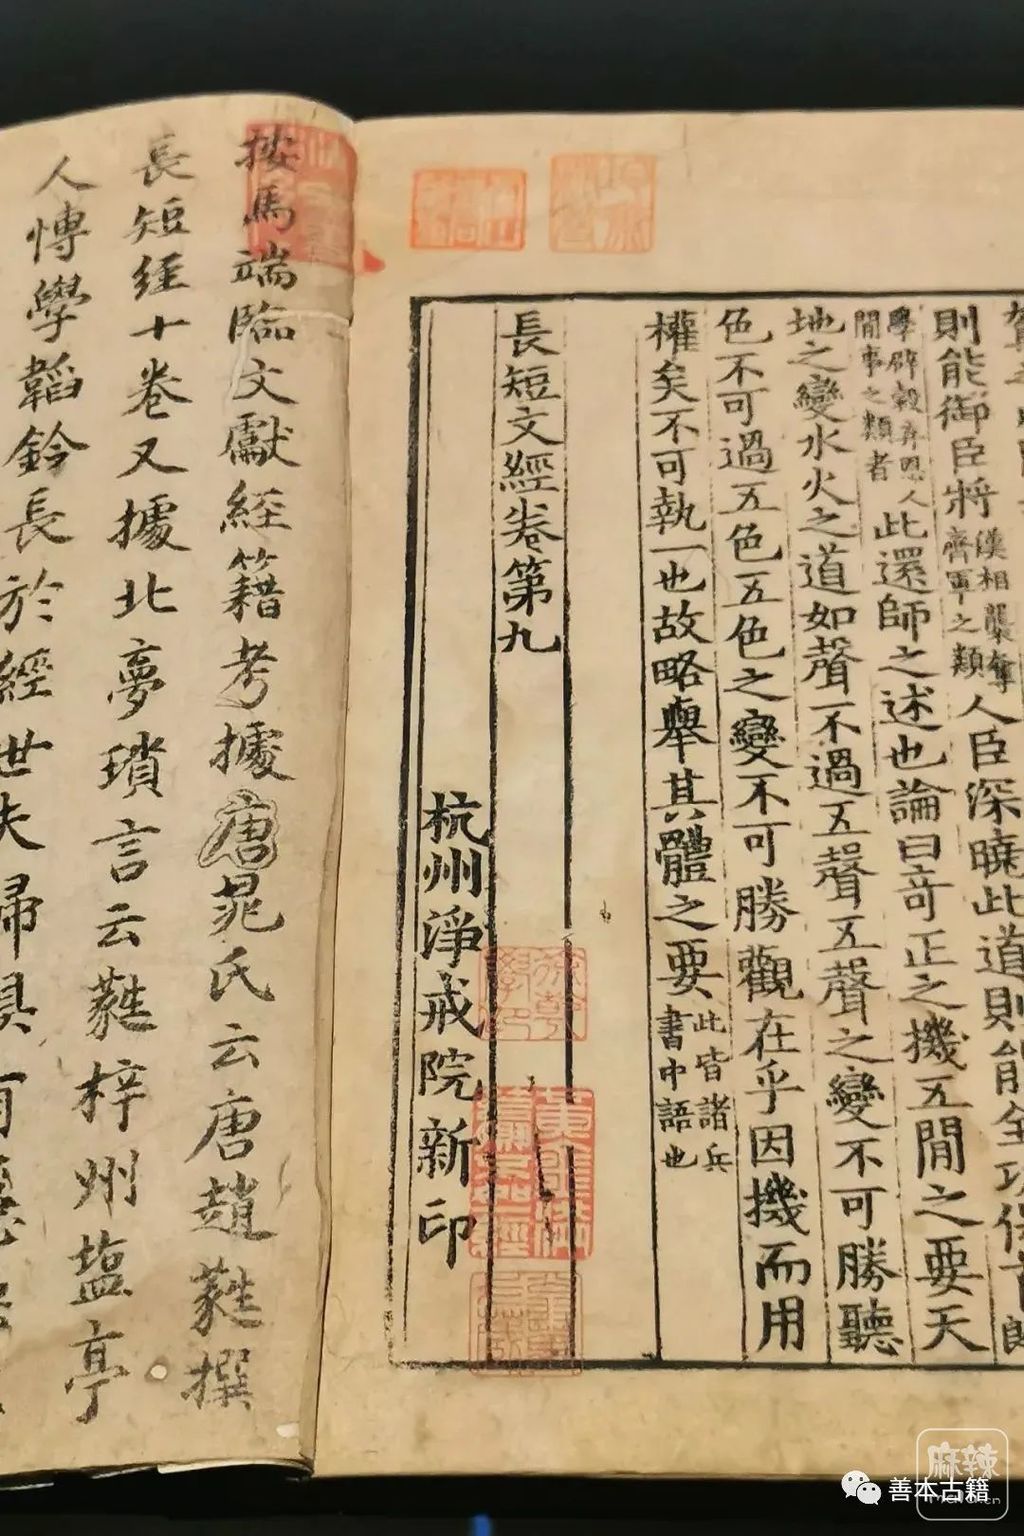 則能御臣將漢相齊軍之類襲奪人臣深曉此道則能全功保首
學辟穀者四人間事之類者此還師之述也論曰奇正之機五間之要天
地之變水火之道如聲不過五聲五聲之變不可勝聽
色不可過五色五色之變不可勝觀在乎因機而用
權矣不可執一也故略舉其體之要此皆諸兵書中語也
長短文經卷第九
杭州淨戒院新印
按馬端臨文獻經籍考據唐晁氏云唐趙蕤撰
長短經十卷又據北夢瑣言云蕤梓州塩亭
人愽學韜鈐長於經世夫婦具有
善本古籍
麻辣